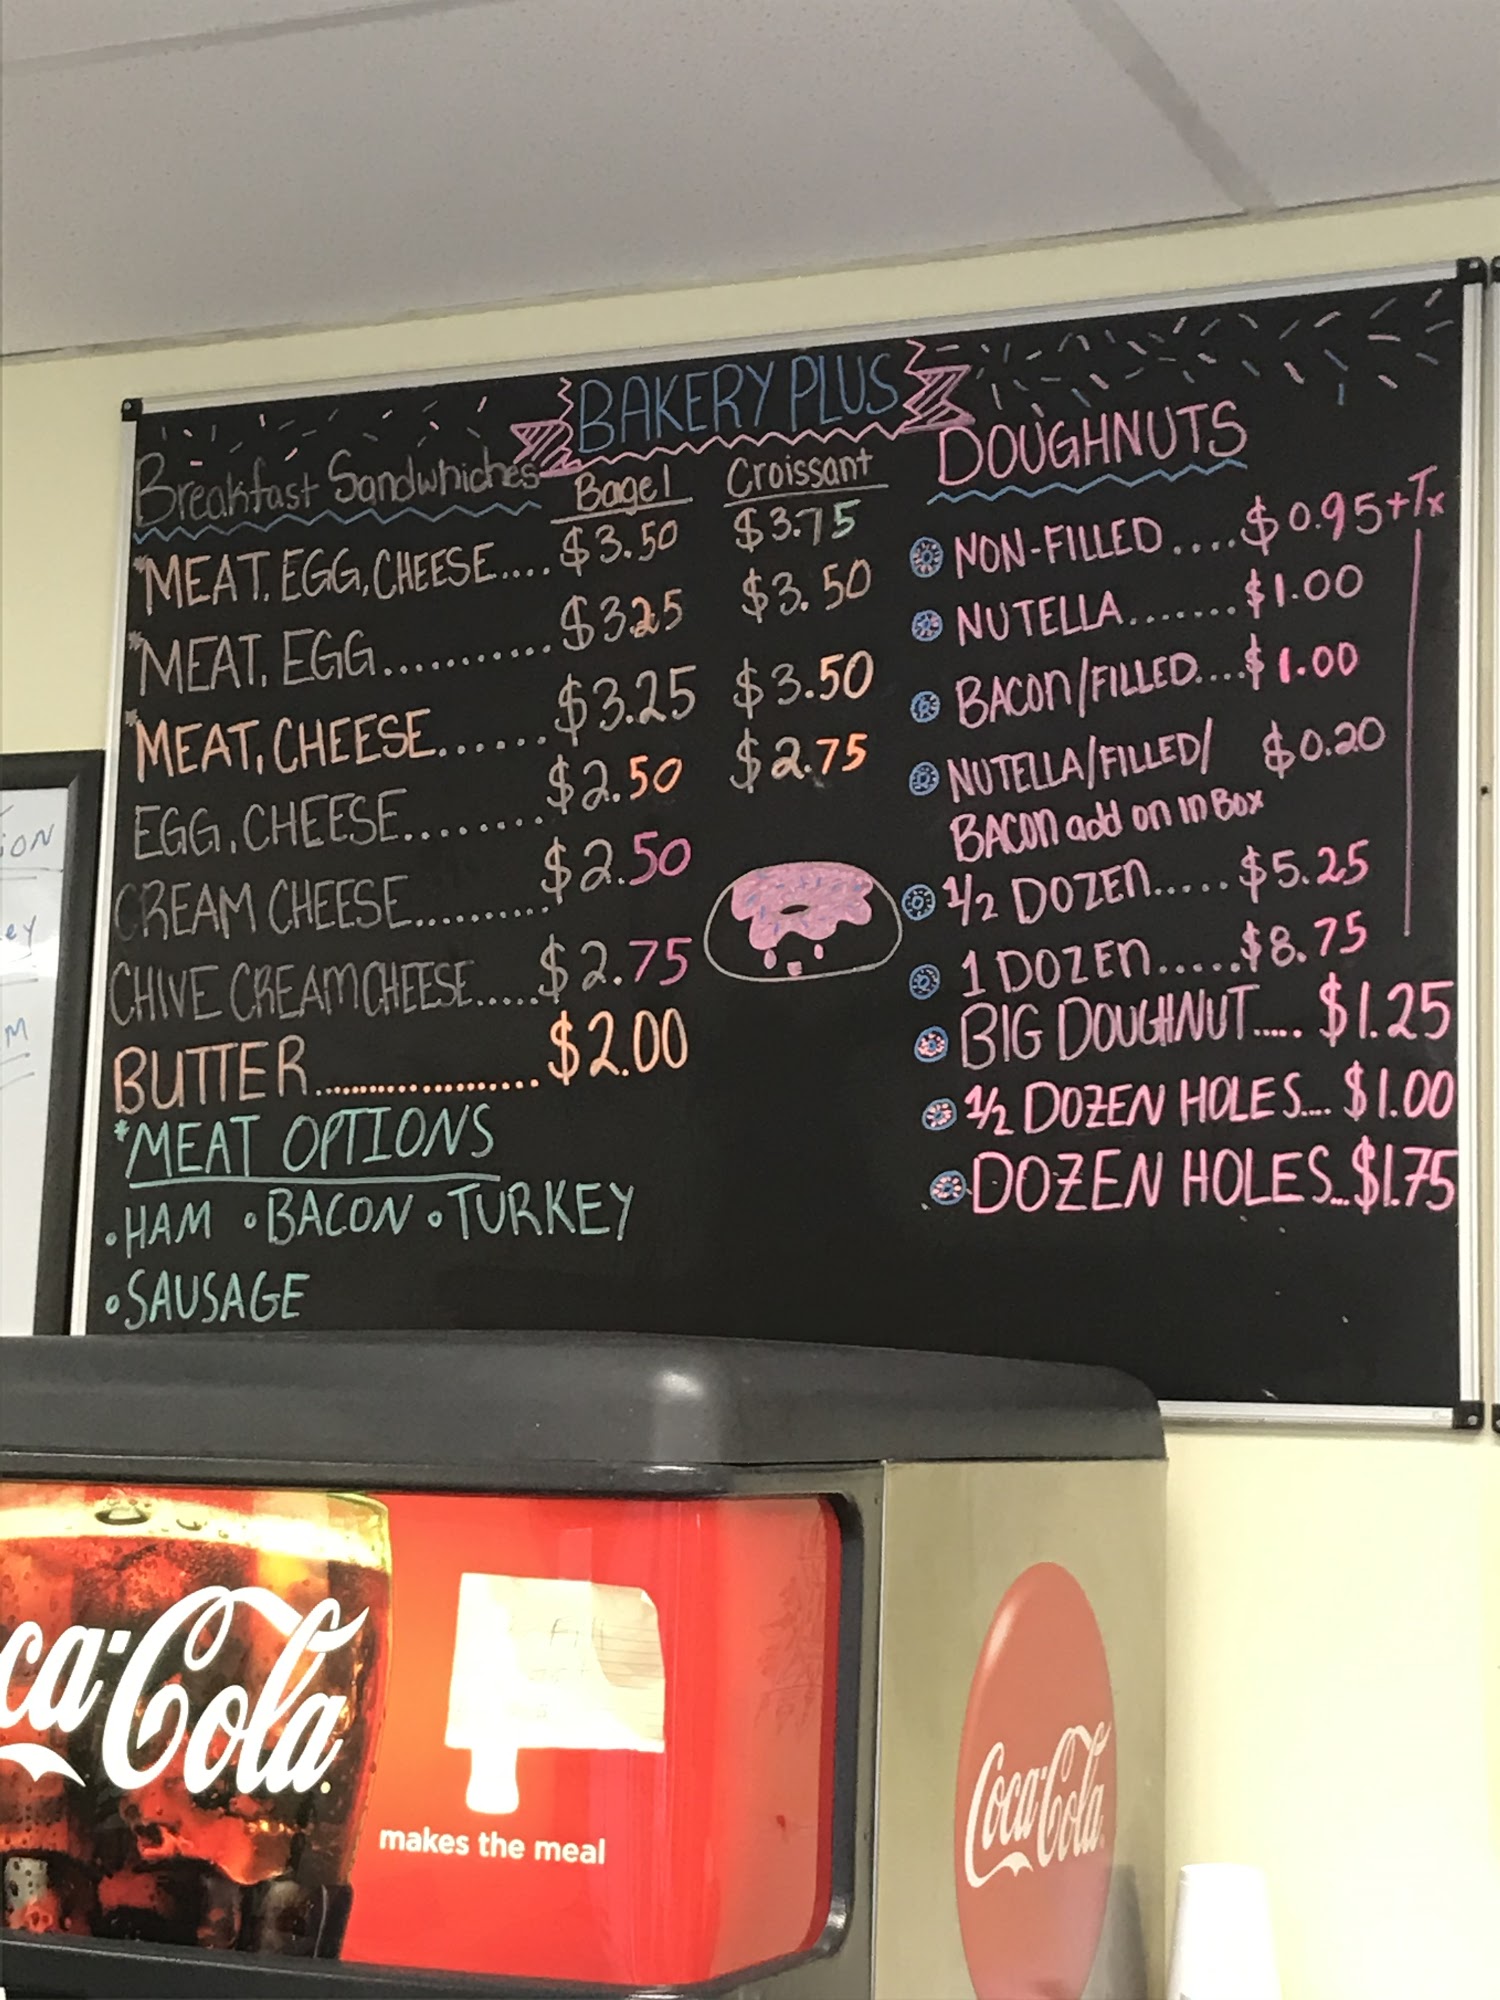 BAKERY PLUS
Breakfast Sandwhiches Bagel Croissant
*MEAT, EGG, CHEESE.... $3.50 $3.75
*MEAT, EGG........... $3.25 $3.50
*MEAT, CHEESE...... $3.25 $3.50
EGG, CHEESE........ $2.50 $2.75
CREAM CHEESE......... $2.50
CHIVE CREAM CHEESE..... $2.75
BUTTER................... $2.00
*MEAT OPTIONS
•HAM •BACON •TURKEY
•SAUSAGE
DOUGHNUTS
NON-FILLED....$0.95+Tx
NUTELLA.......$1.00
BACON/FILLED....$1.00
NUTELLA/FILLED/ $0.20
BACON add on in Box
1/2 DOZEN.....$5.25
1 DOZEN.....$8.75
BIG DOUGHNUT..... $1.25
1/2 DOZEN HOLES.... $1.00
DOZEN HOLES...$1.75
ION
ey
M
ca-Cola
makes the meal
Coca-Cola